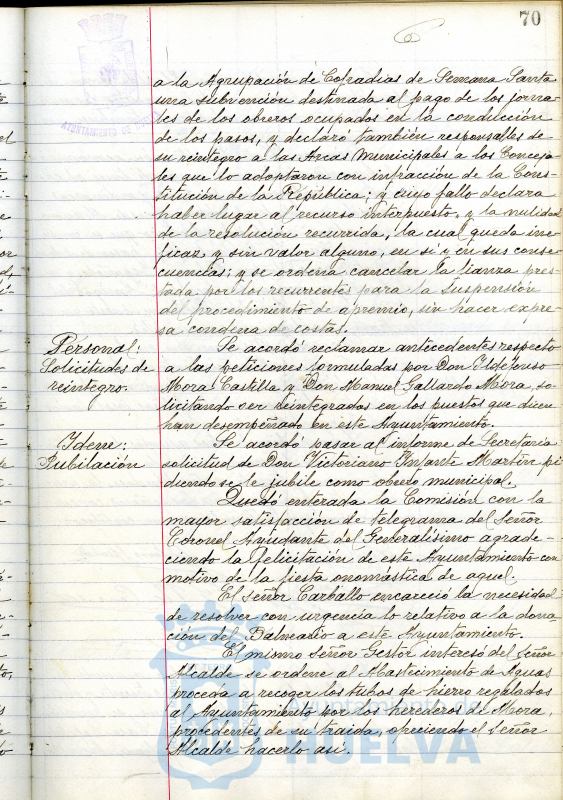 70
a la Agrupación de Cofradías de Semana Santa
una subvención destinada al pago de los jorna-
les de los obreros ocupados en la conducción
de los pasos, y declaró también responsables de
su reintegro a las Arcas Municipales a los Conceja-
les que lo adoptaron con infracción de la Cons-
titución de la República; y cuyo fallo declara
haber lugar al recurso interpuesto, y la nulidad
de la resolución recurrida, la cual queda ine-
ficaz y sin valor alguno, en sí y en sus conse-
cuencias; y se ordena cancelar la fianza pres-
tada por los recurrentes para la suspensión
del procedimiento de apremio, sin hacer expre-
sa condena de costas.
Personal:
Solicitudes de
reintegro.
Se acordó reclamar antecedentes respecto
a las peticiones formuladas por Don Ildefonso
Mora Castilla y Don Manuel Gallardo Mora, so-
licitando ser reintegrados en los puestos que dicen
han desempeñado en este Ayuntamiento.
Idem:
Jubilación
Se acordó pasar al informe de Secretaría
solicitud de Don Victoriano Infante Martín pi-
diendo se le jubile como obrero municipal.
Quedó enterada la Comisión con la
mayor satisfacción de telegrama del Señor
Coronel Ayudante del Generalísimo agrade-
ciendo la felicitación de este Ayuntamiento con
motivo de la fiesta onomástica de aquel.
El señor Carballo encareció la necesidad
de resolver con urgencia lo relativo a la dona-
ción del Balneario a este Ayuntamiento.
El mismo Señor Gestor interesó del Señor
Alcalde se ordene al Abastecimiento de Aguas
proceda a recoger los tubos de hierro regalados
al Ayuntamiento por los herederos de Mora,
procedentes de su traída, ofreciendo el Señor
Alcalde hacerlo así.
Ayuntamiento de
HUELVA